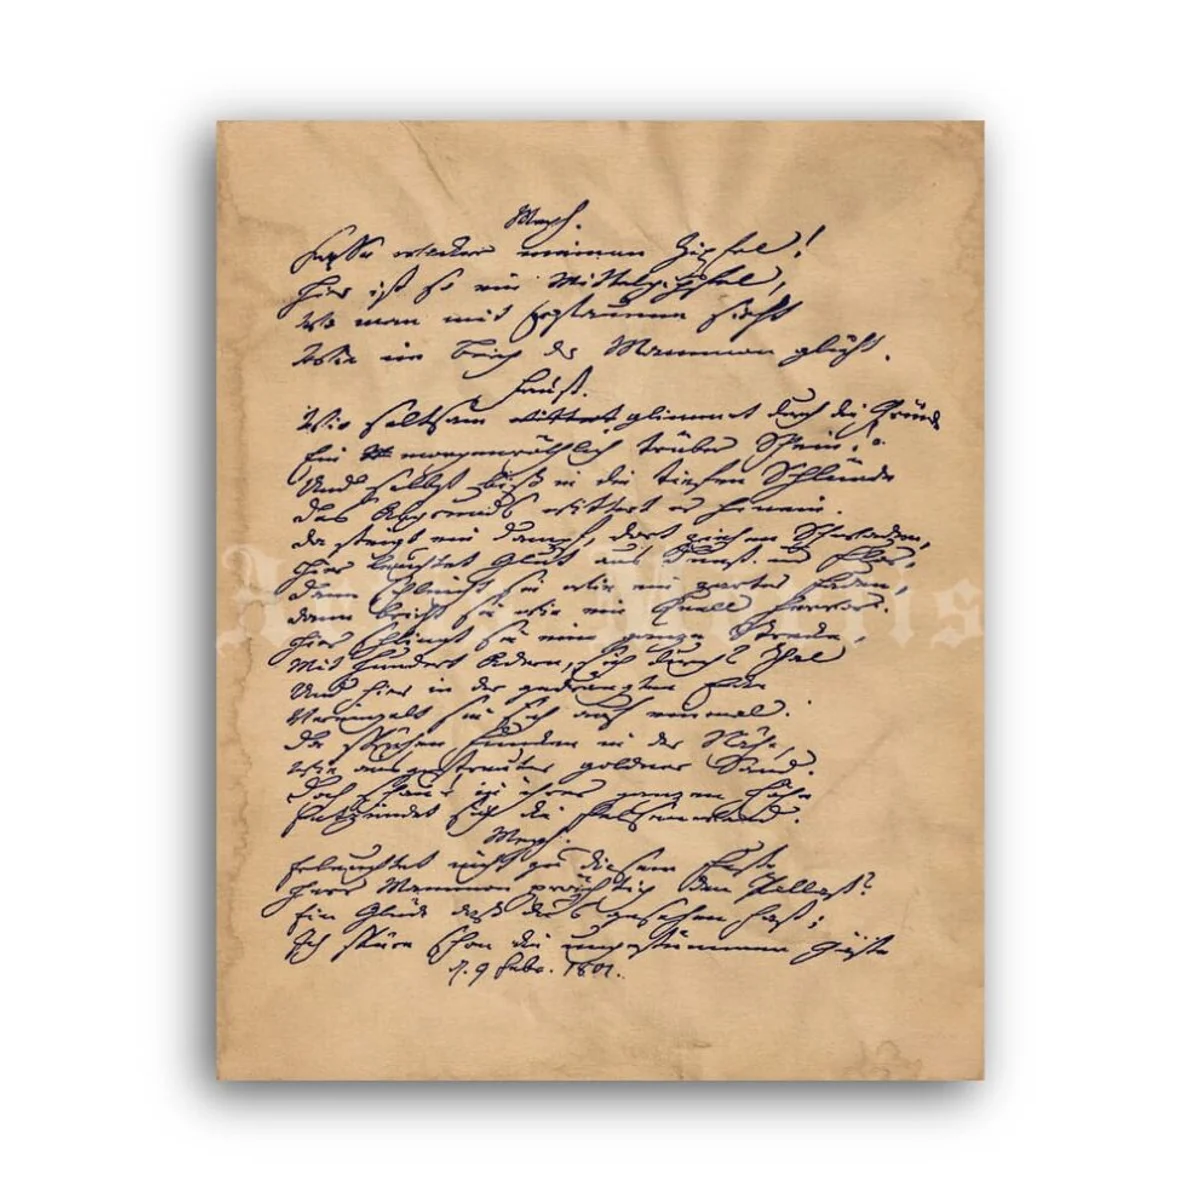 Meph.
Fasse wacker meinen Zipfel!
Hier ist so ein Mittelgipfel,
Wo man mit Erstaunen sieht
Wie im Berg der Mammon glüht.
Faust.
Wie seltsam wittert glimmert durch die Gründe
Ein morgenröthlich trüber Schein!
Und selbst biß in die tiefen Schlünde
Des Abgrunds wittert er hinein.
Da steigt ein Dampf, dort ziehen Schwaden,
Hier leuchtet Glut aus Dunst u Flor,
Dann schleicht sie wie ein zarter Faden,
Dann bricht sie wie ein Quell hervor.
Hier schlingt sie eine ganze Strecke,
Mit hundert Adern, sich durchs Thal
Und hier in der gedrängten Ecke
Vereinzelt sie sich auf einmal.
Da sprühen Funken in der Nähe,
Wie ausgestreuter goldner Sand.
Doch schau! in ihrer ganzen Höhe
Entzündet sich die Felsenwand.
Meph.
Erleuchtet nicht zu diesem Feste
Herr Mammon prächtig den Pallast?
Ein Glück daß du's gesehen hast;
Ich spüre schon die ungestümmen Gäste
d. 9 Febr. 1801.